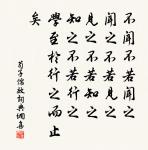 不聞不若
聞之聞之不若
見之見之不若
知之知之不若行之
學至於行之而止
矣
荀子儒效